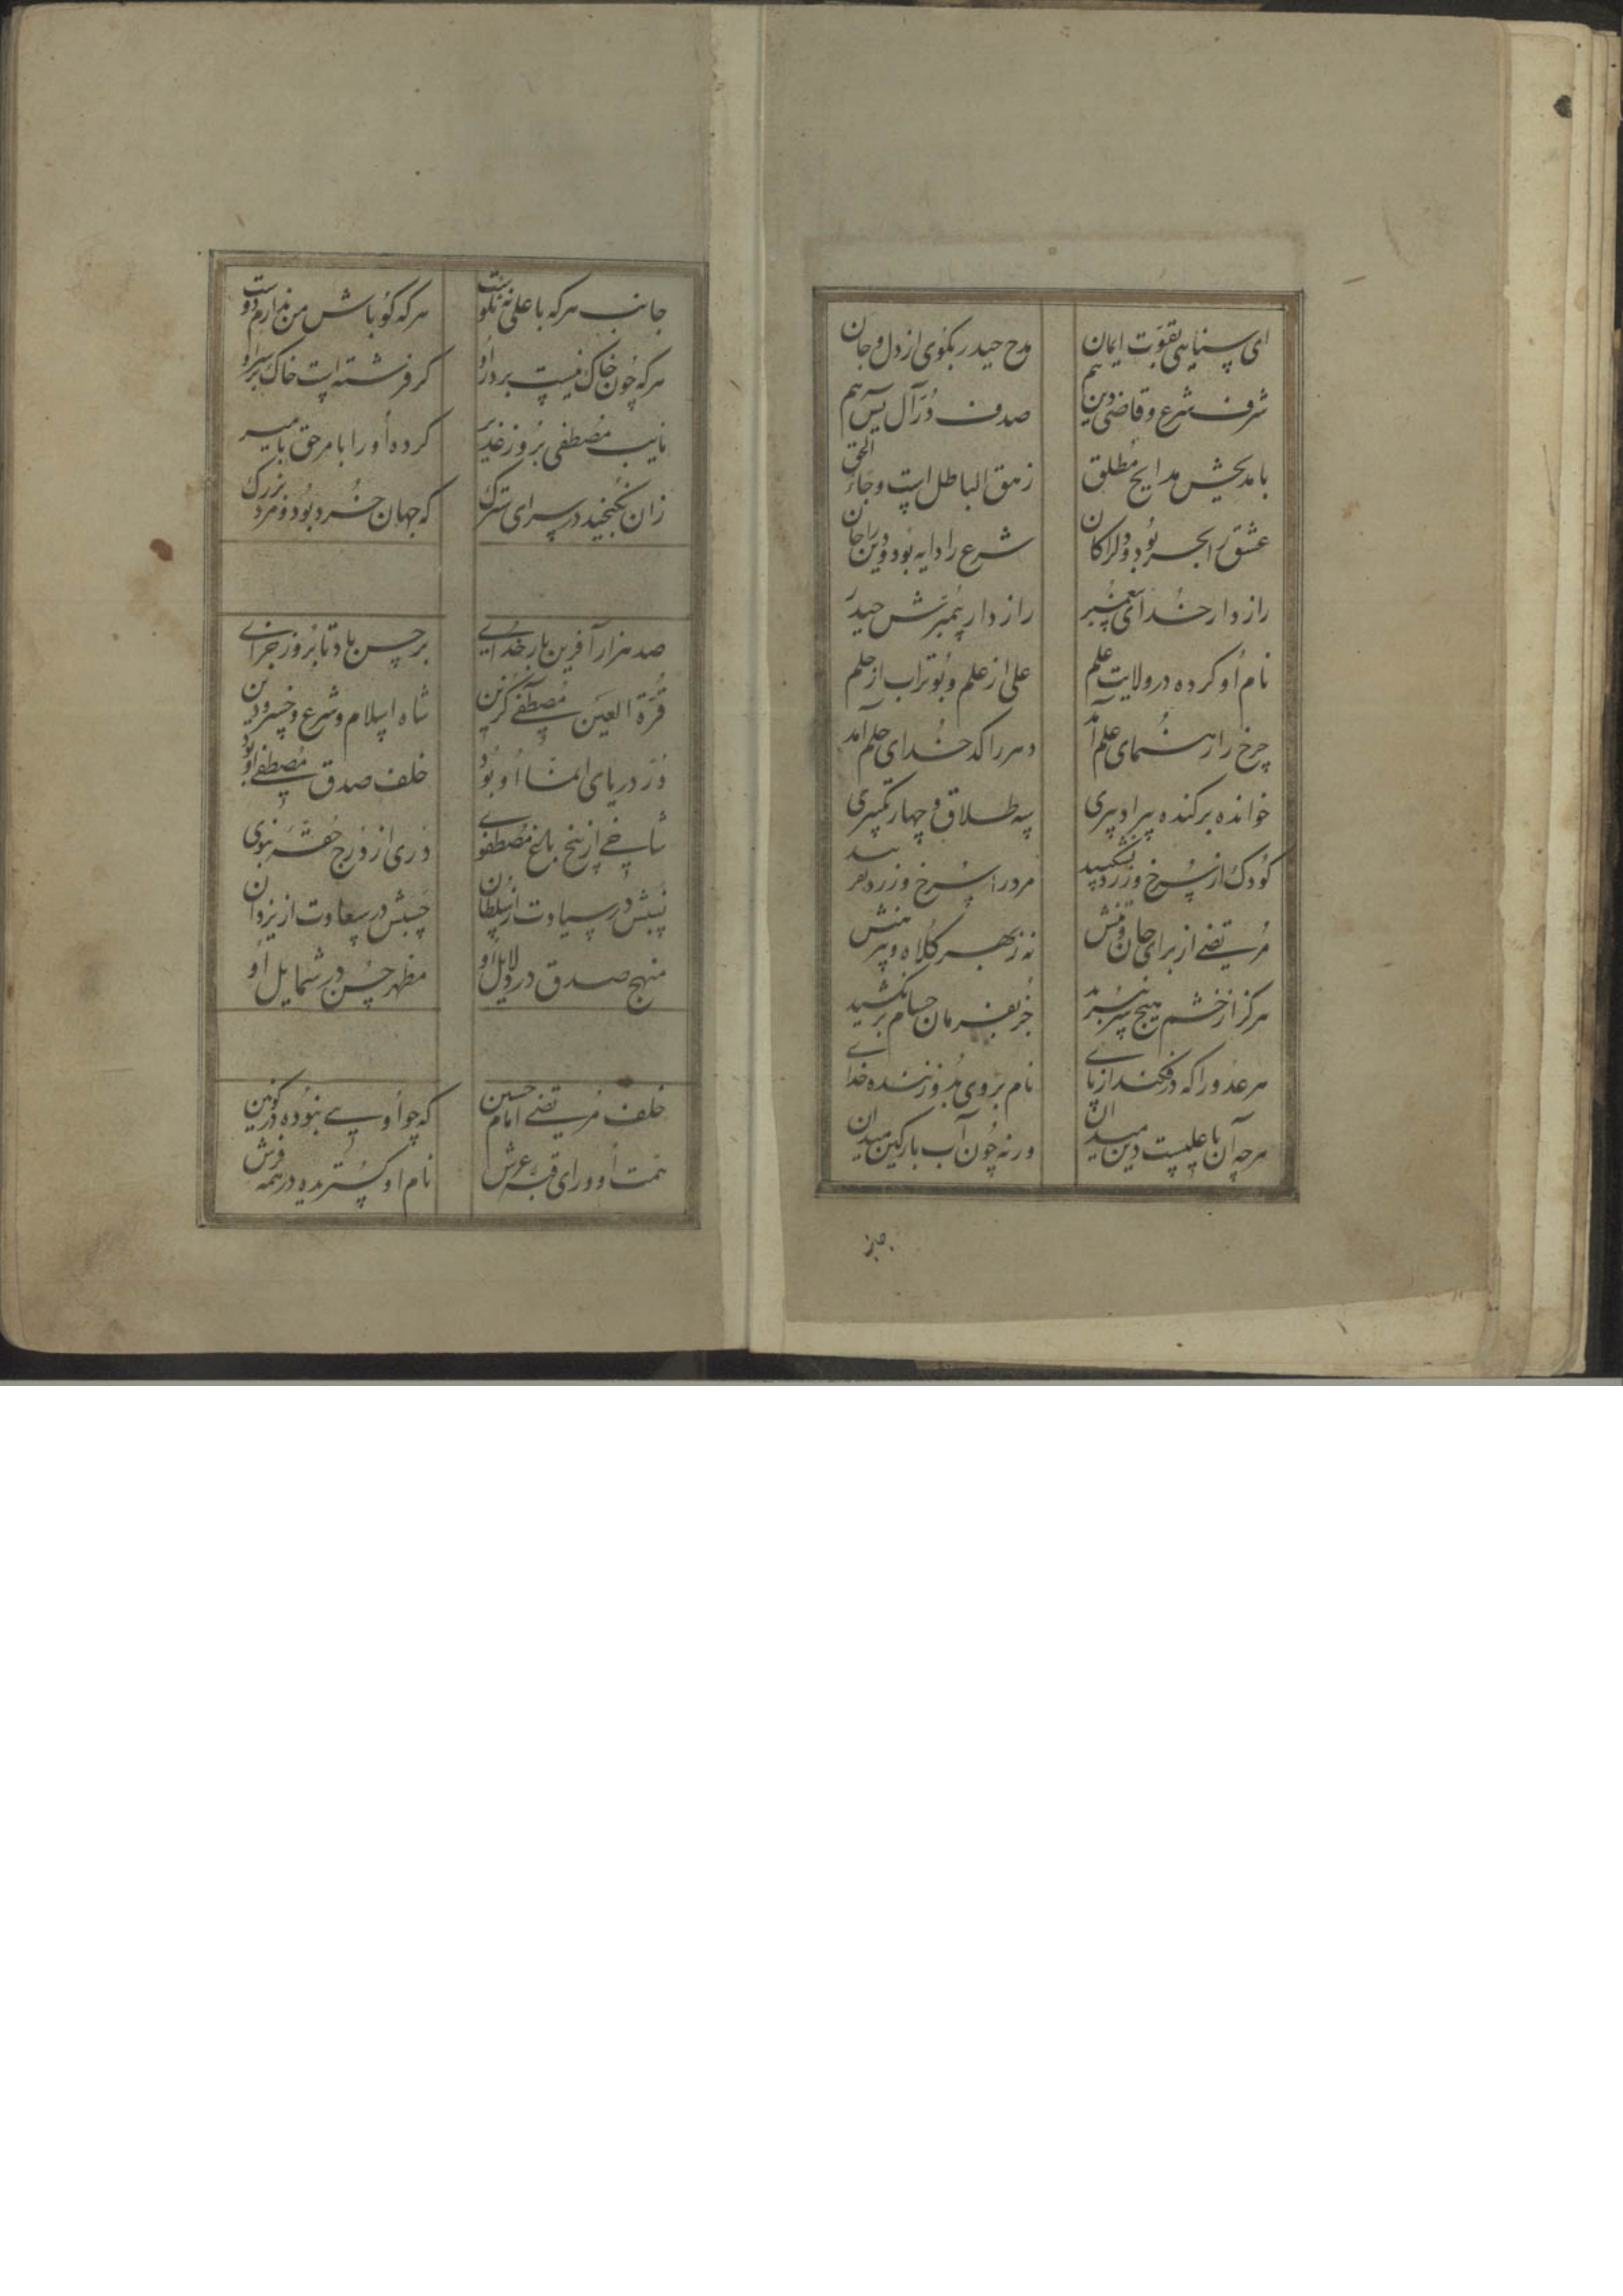 ای سنایی بقوت ایمان مدح حیدر بگوی از دل و جان
شرف شرع و قاضی دین هم صدف در آل یس هم
با مدیحش مدایح مطلق زهق الباطل است و جاء الحق
عشق را بحر بود و دل را کان شرع را دایه بود و دین را جان
راز دار خدای پیغمبر راز دار پیمبرش حیدر
نام او کرده در ولایت علم علی از علم و بوتراب از حلم
چرخ را رهنمای علم آمد دهر را کدخدای حلم آمد
خوانده بر کنده پیر او پیری سه طلاق و چهار تکبیری
کودک از سرخ و زرد بشکیبد مرد را سرخ و زرد نفریبد
مرتضی از برای جان و تنش نه ز بهر کلاه و پیرهنش
هرگز از خشم هیچ سر نبرید جز بفرمان حسام بر نکشید
هر عدو را که در فکند از پای نام بر وی بد و زننده خدای
هرچه آن با علیست دین میدان ورنه چون آب بارکین میدان
جانب هرکه با علی نه نکوست هرکه گو باش من ندارم دوست
هرکه چون خاک نیست بر در او گر فرشته است خاک بر سر او
نایب مصطفی بروز غدیر کرده او را بامر حق بامیر
زان نگنجید در سرای سترگ که جهان خرد بود و مرد بزرگ
صد هزار آفرین بار خدای بر حسن باد تا بروز جزای
قرة العین مصطفی گزین شاه اسلام و شرع و خسرو دین
در دریای انما او بود خلف صدق مصطفی او بود
شاخی از بیخ باغ مصطفوی دری از درج حقه نبوی
نسبش در سیادت از سلطان حسبش در سعادت از یزدان
منهج صدق در دلایل او مظهر حسن در شمایل او
خلف مرتضی امام حسین که چو اویی نبوده در کونین
همت او ورای قبه عرش نام او گستریده در همه فرش